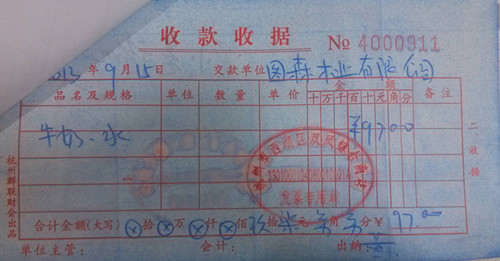 收款收据 № 4000911
2013年9月15日 交款单位 图森木业有限公司
品名及规格 单位 数量 单价 金额 备注
十万千百十元角分
牛奶、水 ¥9700
合计金额(大写) ⊗拾⊗万⊗仟⊗佰玖拾柒元零角零分¥97.00
单位主管: 会计: 出纳:
二收据
杭州群联财会出品
发票专用章